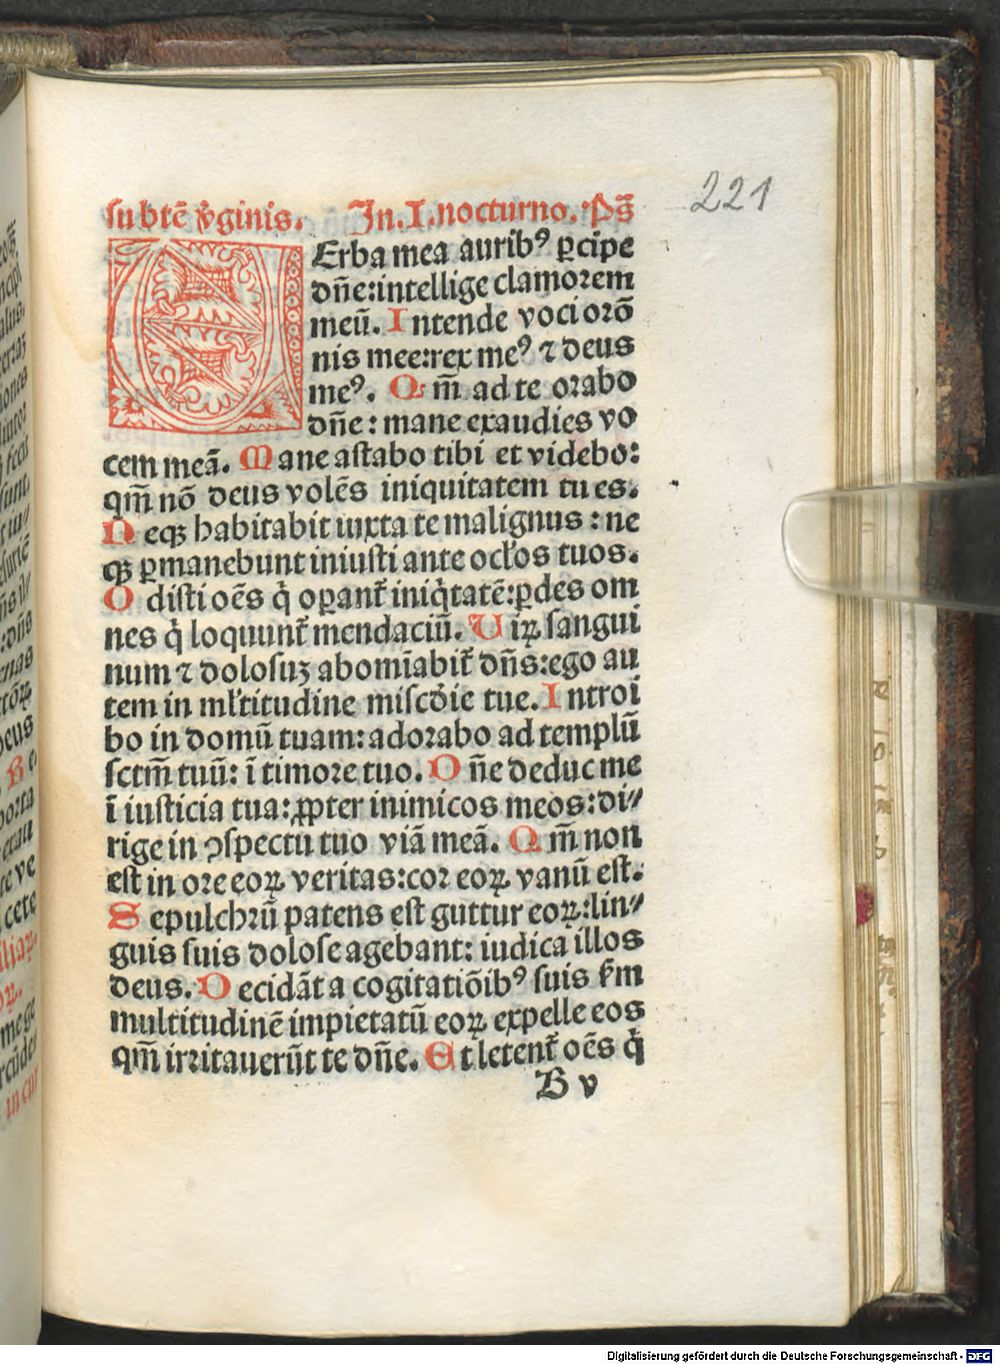 221
subtẽ v̾ginis. In.I.nocturno. Ps̃
VErba mea auribꝰ ꝑcipe
dñe:intellige clamorem
meũ. Intende voci orõ
nis mee:rex meꝰ ⁊ deus
meꝰ. Qm̃ ad te orabo
dñe: mane exaudies vo
cem meã. Mane astabo tibi et videbo:
qm̃ nõ deus volẽs iniquitatem tu es.
Neqꝫ habitabit iuxta te malignus : ne
qꝫ ꝑmanebunt iniusti ante ocl̃os tuos.
Odisti oẽs q̇ oꝑant̃ iniq̇tatẽ:ꝑdes om
nes q̇ loquunt̃ mendaciũ. Uiꝝ sangui
num ⁊ dolosuꝫ abomĩabit̃ dñs:ego au
tem in ml̃titudine misc̃õie tue. Introi
bo in domũ tuam: adorabo ad templũ
sctm̃ tuũ: ĩ timore tuo. Dñe deduc me
ĩ iusticia tua: ꝓpter inimicos meos:di⸗
rige in ꝯspectu tuo viã meã. Qm̃ non
est in ore eoꝝ veritas:cor eoꝝ vanũ est.
Sepulchrũ patens est guttur eoꝝ:lin⸗
guis suis dolose agebant: iudica illos
deus. Decidãt a cogitatiõibꝰ suis s̃m
multitudinẽ impietatũ eoꝝ expelle eos
qm̃ irritauerũt te dñe. Et letent̃ oẽs q̇
B v
Digitalisierung gefördert durch die Deutsche Forschungsgemeinschaft - DFG